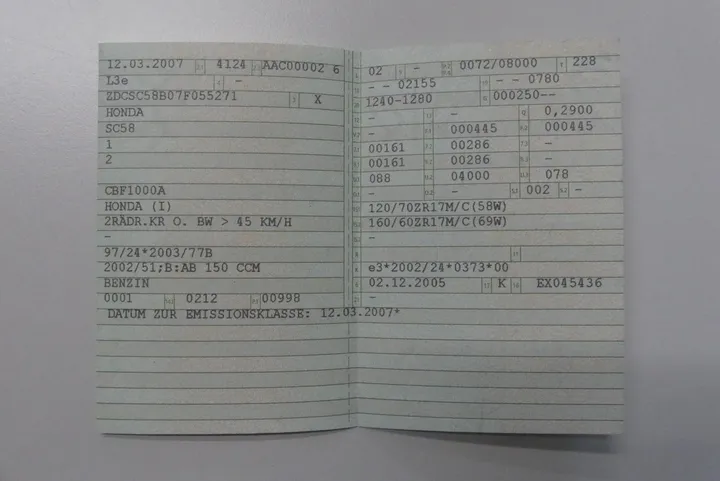 12.03.2007 4124 AAC00002 6
L3e -
ZDCSC58B07F055271 X
HONDA
SC58
1
2
CBF1000A
HONDA (I)
2RÄDR.KR O. BW > 45 KM/H
-
97/24*2003/77B
2002/51;B:AB 150 CCM
BENZIN
0001 0212 00998
DATUM ZUR EMISSIONSKLASSE: 12.03.2007*
02 - 0072/08000 228
- - 02155 - - 0780
1240-1280 000250--
- - 0,2900
- 000445 000445
00161 00286 -
00161 00286 -
088 04000 078
- - 002 -
120/70ZR17M/C(58W)
160/60ZR17M/C(69W)
-
e3*2002/24*0373*00
02.12.2005 K EX045436
-